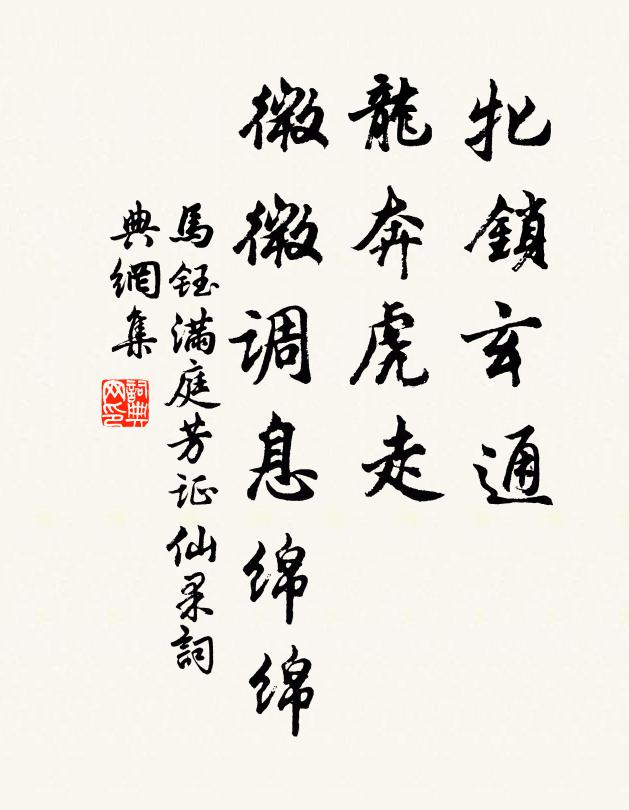 牝鎖玄通
龍奔虎走
微微调息绵绵
馬鈺满庭芳证仙果詞
典網集
詞典网印